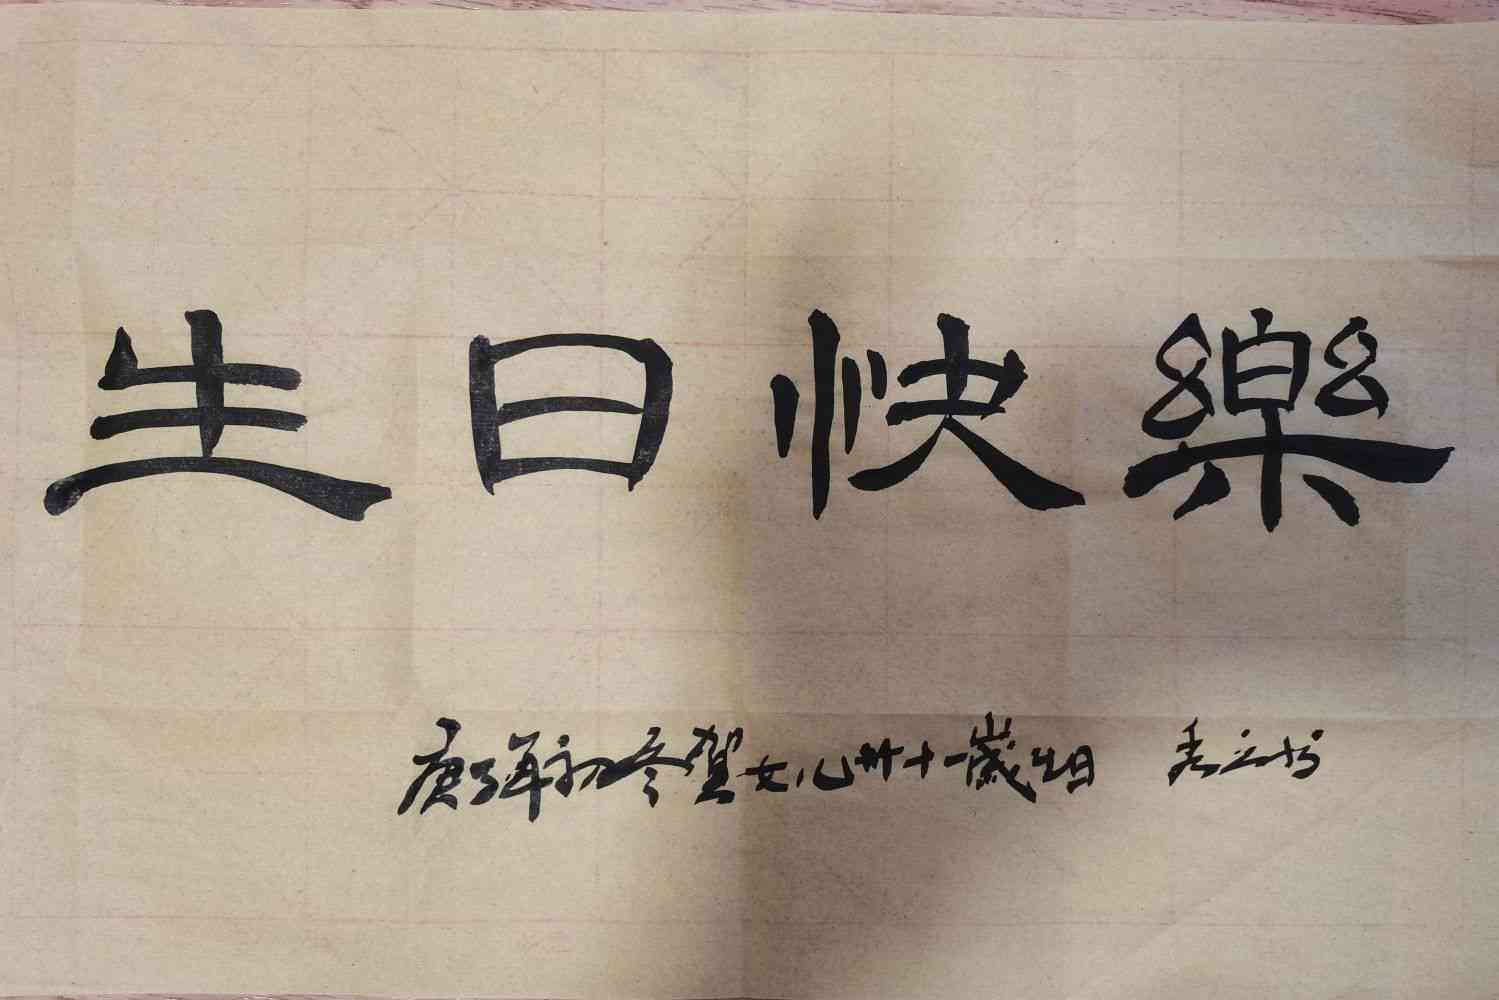 生日快樂
庚子年初冬賀女儿卅十一歲生日 秀立书